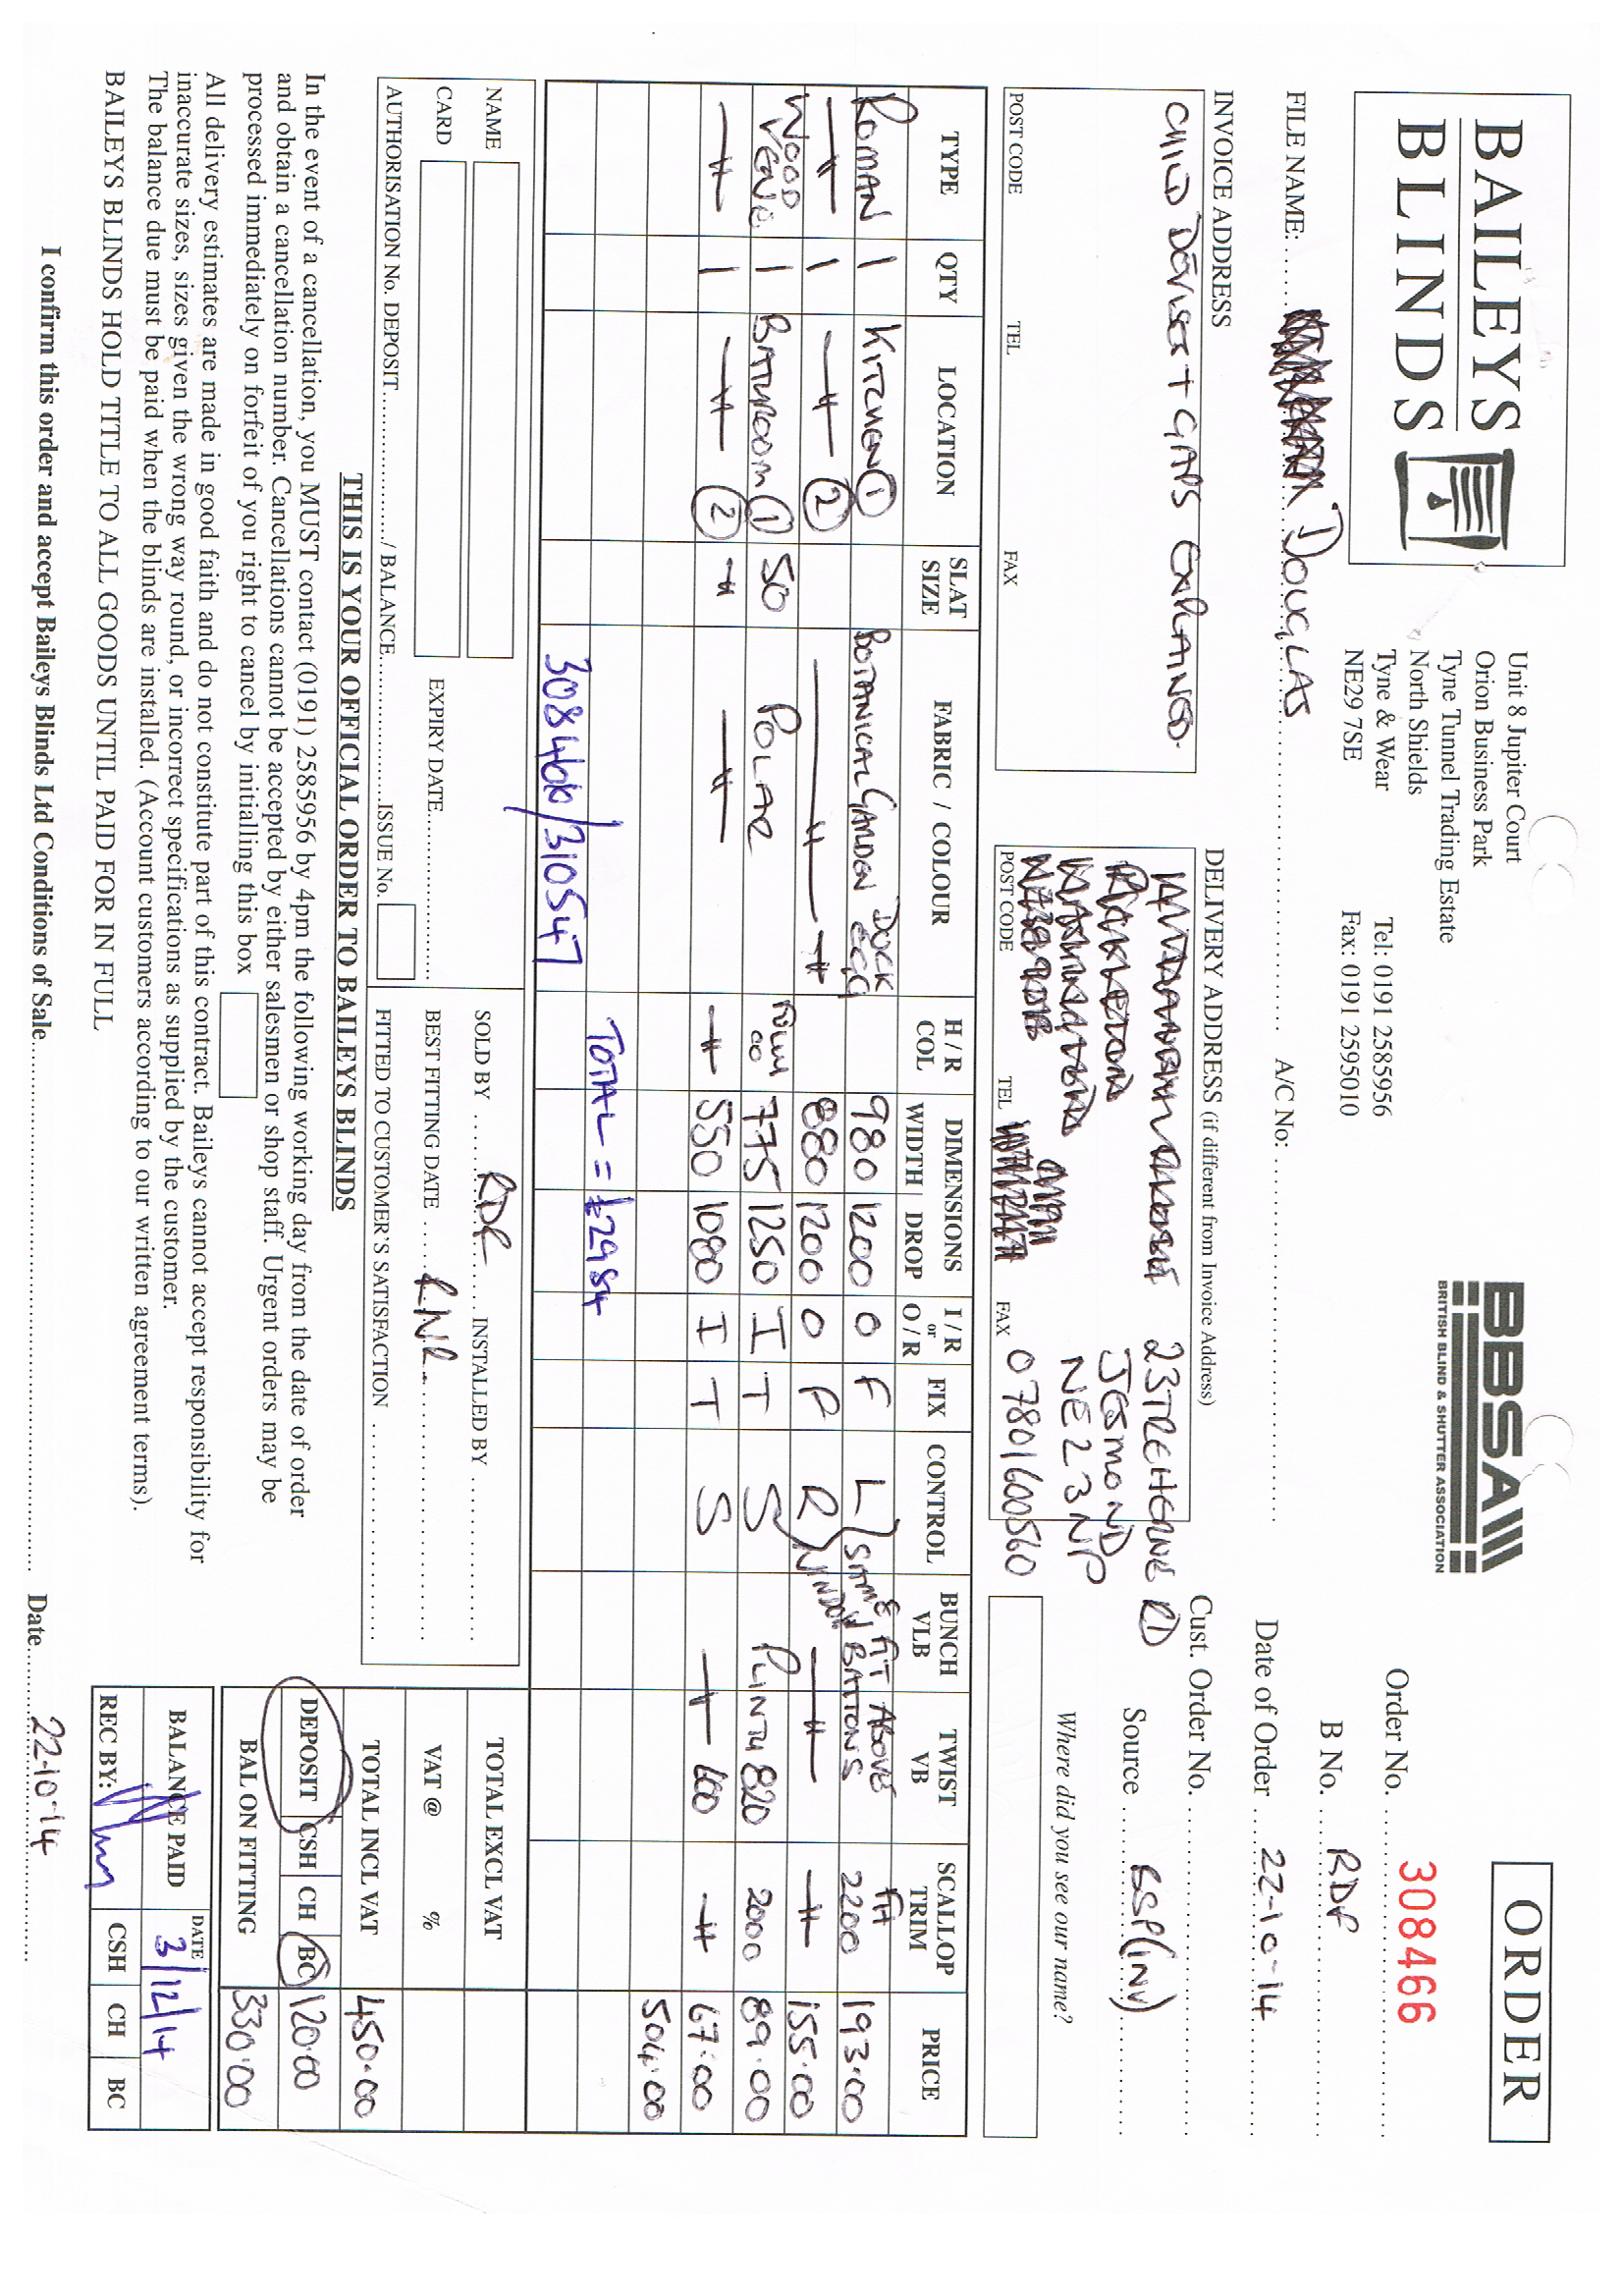 BAILEYS
BLINDS
Unit 8 Jupiter Court
Orion Business Park
Tyne Tunnel Trading Estate
North Shields
Tyne & Wear
NE29 7SE
Tel: 0191 2585956
Fax: 0191 2595010
BBSA
BRITISH BLIND & SHUTTER ASSOCIATION
ORDER
Order No. 308466
B No. RDP
Date of Order 22-10-14
Cust. Order No.
Source ESP(INV)
Where did you see our name?
FILE NAME: DOUGLAS
A/C No:
INVOICE ADDRESS
CHILD DEVISES + GAPS EXPLAINED.
POST CODE TEL FAX
DELIVERY ADDRESS (if different from Invoice Address)
23 TREHERNE RD
JESMOND
NE2 3NP
POST CODE TEL FAX 07801600560
TYPE QTY LOCATION SLAT SIZE FABRIC / COLOUR H / R COL DIMENSIONS WIDTH DROP I / R or O / R FIX CONTROL BUNCH VLB TWIST VB SCALLOP TRIM PRICE
ROMAN 1 KITCHEN 1 BOTANICAL GARDEN DUCK EGG 980 1200 O F L SAME & FIT ABOVE BATTONS FH 2200 193.00
1 2 880 1200 O R WINDOW 155.00
WOOD VENE 1 BATHROOM 1 50 POLAR 775 1250 I T S PLINTH 820 2000 89.00
1 2 550 1080 I T S 600 67.00
504.00
TOTAL = £2984
308466/310547
NAME
CARD
EXPIRY DATE
AUTHORISATION No. DEPOSIT / BALANCE ISSUE No.
SOLD BY RDR INSTALLED BY
BEST FITTING DATE R.N.R.
FITTED TO CUSTOMER'S SATISFACTION
TOTAL EXCL VAT
VAT @ %
TOTAL INCL VAT 450.00
DEPOSIT CSH CH BC 120.00
BAL ON FITTING 330.00
BALANCE PAID DATE 3/12/14
REC BY: CSH CH BC
THIS IS YOUR OFFICIAL ORDER TO BAILEYS BLINDS
In the event of a cancellation, you MUST contact (0191) 2585956 by 4pm the following working day from the date of order
and obtain a cancellation number. Cancellations cannot be accepted by either salesmen or shop staff. Urgent orders may be
processed immediately on forfeit of you right to cancel by initialling this box
All delivery estimates are made in good faith and do not constitute part of this contract. Baileys cannot accept responsibility for
inaccurate sizes, sizes given the wrong way round, or incorrect specifications as supplied by the customer.
The balance due must be paid when the blinds are installed. (Account customers according to our written agreement terms).
BAILEYS BLINDS HOLD TITLE TO ALL GOODS UNTIL PAID FOR IN FULL
I confirm this order and accept Baileys Blinds Ltd Conditions of Sale Date 22-10-14